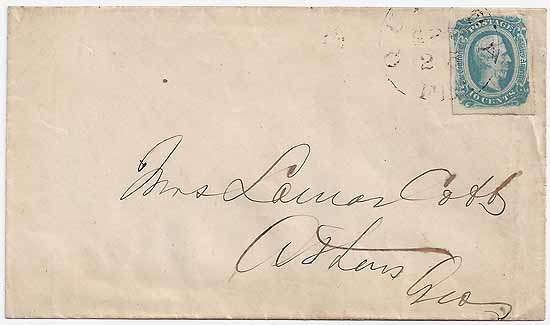 POSTAGE
2
10 CENTS
Mrs Lamar Cobb
Athens
Geo